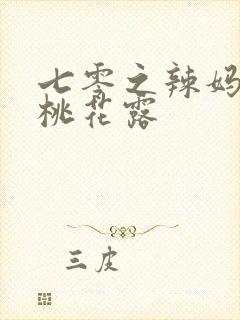 七零之辣妈
桃花露
三皮